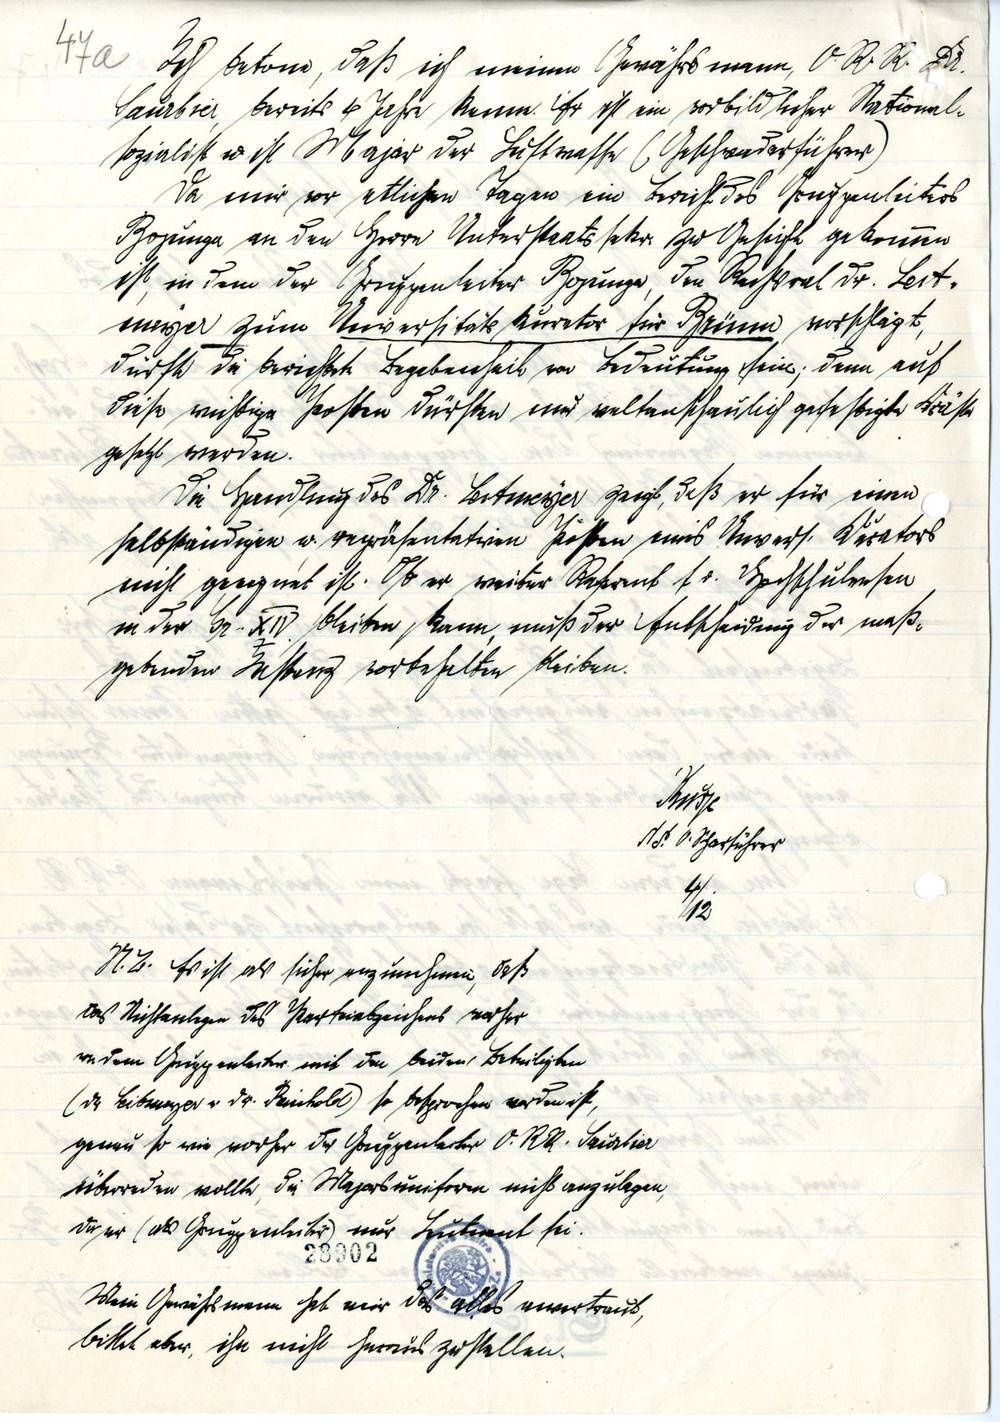 47a
Ich betone, daß ich meinen Gewährsmann, O. R. R. Dr.
Saurbier, bereits 4 Jahre kenne. Er ist ein vorbildlicher National-
sozialist u. ist Major der Luftwaffe (Geschwaderführer)
Da mir vor etlichen Tagen ein Bericht des Gruppenleiters
Bojunga an den Herrn Unterstaatssekr. zu Gesicht gekommen
ist, in dem der Gruppenleiter Bojunga, den Rechtsrat Dr. Leit-
meyer zum Universitätskurator für Brünn vorschlägt,
dürfte die berichtete Begebenheit von Bedeutung sein; denn auf
diese wichtige Posten dürften nur weltanschaulich gefestigte Kräfte
gesetzt werden.
Die Handlung des Dr. Leitmeyer zeigt, daß er für einen
selbständigen u. repräsentativen Posten eines Univers. Kurators
nicht geeignet ist. Ob er weiter Referent f. d. Hochschulwesen
in der Gr. XIV bleiben kann, muß der Entscheidung der maß-
gebenden Instanz vorbehalten bleiben.
SS. O. Scharführer
4/12
N. B. Es ist als sicher anzunehmen, daß
das Nichtanlegen des Parteiabzeichens vorher
von dem Gruppenleiter mit den beiden Beteiligten
(Dr. Leitmeyer u. Dr. Reinhold) so besprochen worden ist,
genau so wie vorher der Gruppenleiter O. R. R. Saurbier
überreden wollte, die Majorsuniform nicht anzulegen,
da er (als Gruppenleiter) nur Leutnant sei.
28902
Mein Gewährsmann hat mir das alles anvertraut,
bittet aber, ihn nicht herauszustellen.